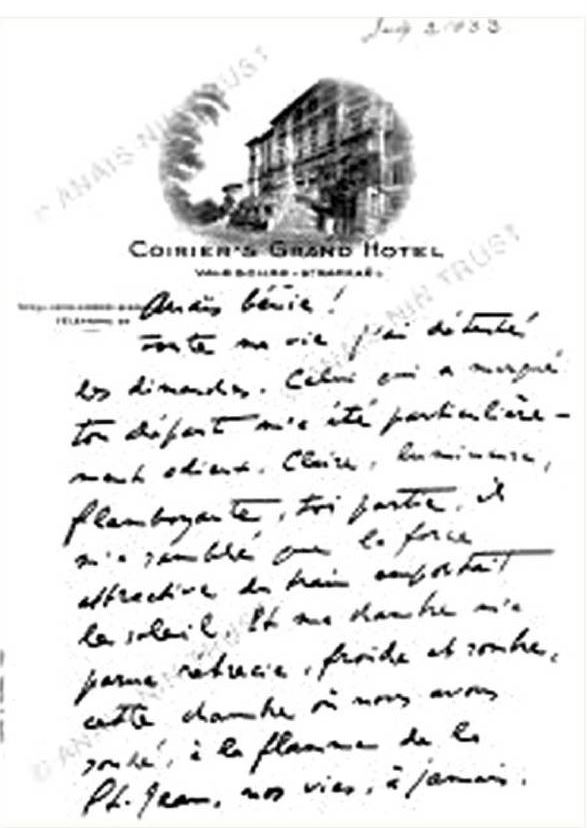 © ANAIS NIN TRUST
COIRIER'S GRAND HOTEL
VALESCURE - ST RAPHAËL
© ANAIS NIN TRUST
Anaïs bénie!
TÉLÉPHONE
Toute ma vie j'ai détesté
les dimanches. Celui qui a marqué
ton départ m'a été particulière-
ment odieux. Claire, lumineuse,
flamboyante, toi partie, il
m'a semblé que la force
attractive du train emportait
le soleil. Et ma chambre m'a
parue rétrécie, froide et sombre,
cette chambre où nous avons
soudé, à la flamme de la
St. Jean, nos vies, à jamais.
© ANAIS NIN TRUST